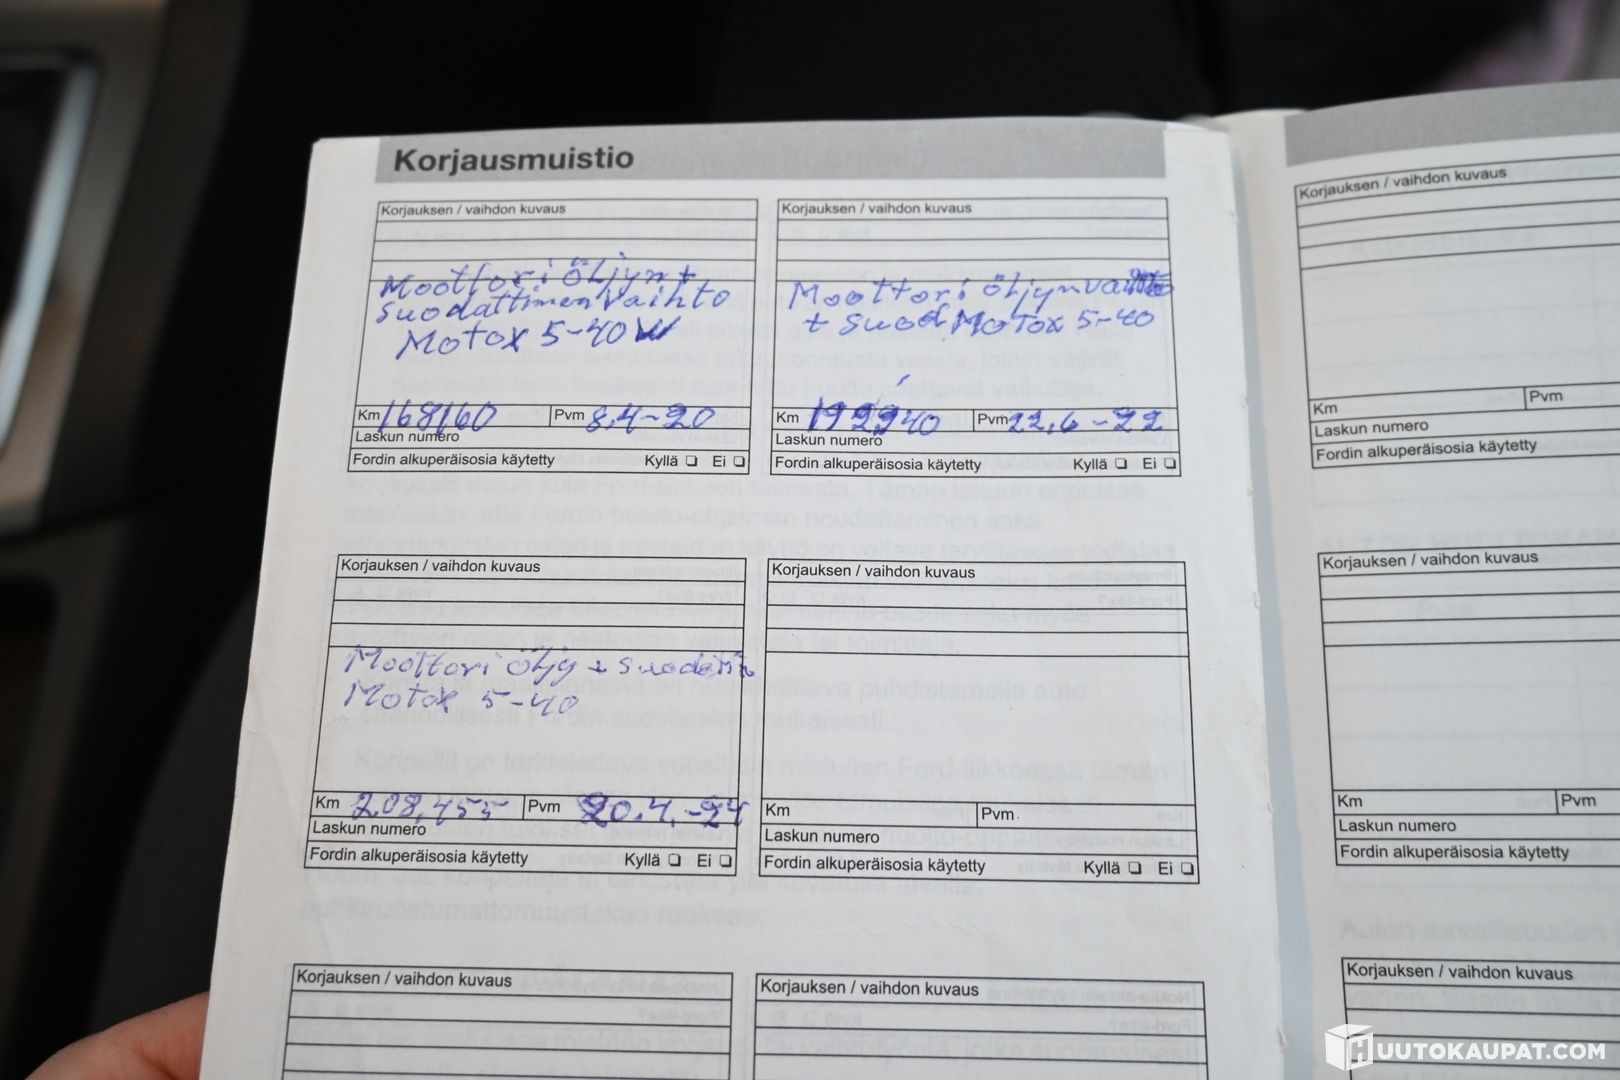 Korjausmuistio
Korjauksen / vaihdon kuvaus
Moottori öljyn +
suodattimen vaihto
Motox 5-40 W
Km 168160 Pvm 8.4-20
Laskun numero
Fordin alkuperäisosia käytetty Kyllä ❏ Ei ❏
Korjauksen / vaihdon kuvaus
Moottori öljyn vaihto
+ suod Motox 5-40
Km 192240 Pvm 22.6-22
Laskun numero
Fordin alkuperäisosia käytetty Kyllä ❏ Ei ❏
Korjauksen / vaihdon kuvaus
Moottori öljy + suodatin
Motox 5-40
Km 208,455 Pvm 20.4.-24
Laskun numero
Fordin alkuperäisosia käytetty Kyllä ❏ Ei ❏
Korjauksen / vaihdon kuvaus
Km Pvm.
Laskun numero
Fordin alkuperäisosia käytetty Kyllä ❏ Ei ❏
Korjauksen / vaihdon kuvaus
Korjauksen / vaihdon kuvaus
Korjauksen / vaihdon kuvaus
Km Pvm
Laskun numero
Fordin alkuperäisosia käytetty
Korjauksen / vaihdon kuvaus
Km Pvm
Laskun numero
Fordin alkuperäisosia käytetty
Korjauksen / vaihdon kuvaus
HUUTOKAUPAT.COM